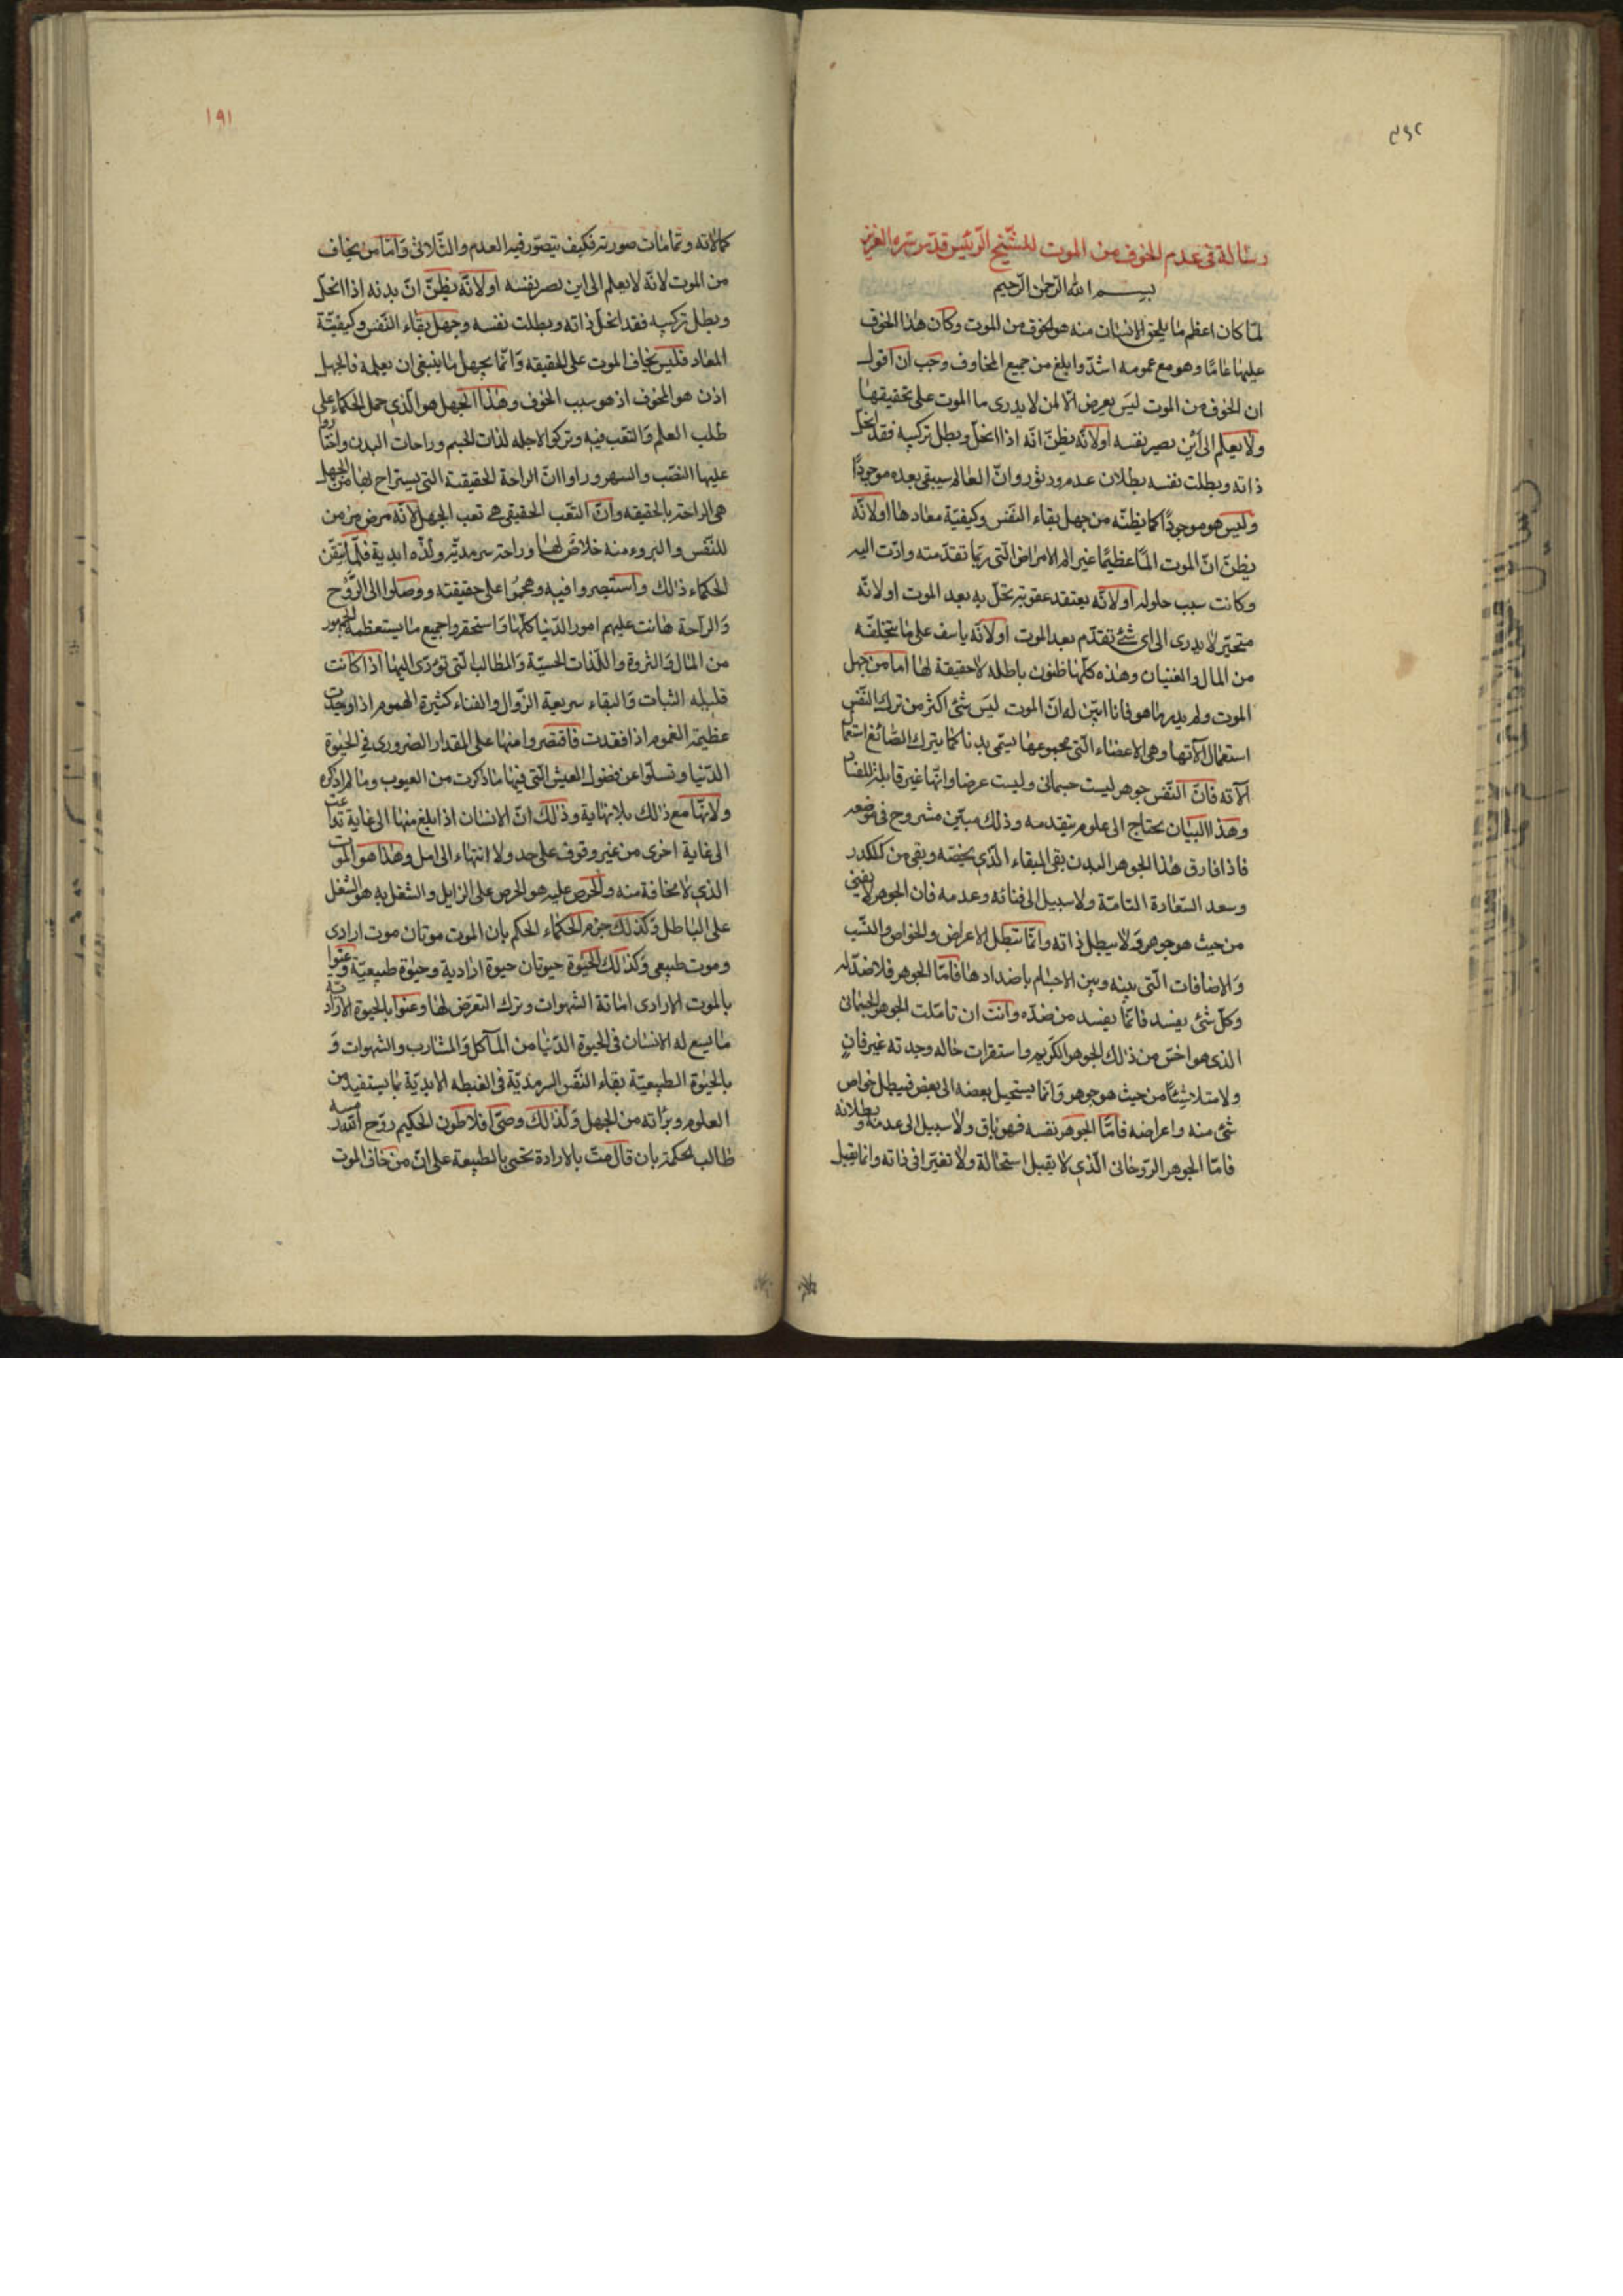 رسالة في عدم الخوف من الموت للشيخ الرئيس قدس سره العزيز
بسم الله الرحمن الرحيم
لما كان اعظم ما يلحق الانسان منه هو الخوف من الموت وكان هذا الخوف
عليها عاما وهو مع عمومه اشد وابلغ من جميع المخاوف وجب ان اقول
ان الخوف من الموت ليس يعرض الا لمن لا يدرى ما الموت على تحقيقها
ولا يعلم الى اين يصير نفسه اولانه يظن انه اذا انحل وبطل تركيبه فقد انحل
ذاته وبطلت نفسه بطلان عدم ودثور وان العالم سيبقى بعده موجودا
وليس هو موجودا كما يظنه من جهل بقاء النفس وكيفية معادها اولانه
يظن ان الموت الما عظيما غير الم الامراض التى ربما تقدمته وادت اليه
وكانت سبب حلوله اولانه يعتقد عقوبة تحل به بعد الموت اولانه
متحير لا يدرى الى اى شئ تقدم بعد الموت اولانه ياسف على ما يتخلفه
من المال والغنيان وهذه كلها ظنون باطلة لا حقيقة لها اما من جهل
الموت ولم يدر ما هو فانا ابين له ان الموت ليس شئ اكثر من ترك النفس
استعمال الآتها وهى الاعضاء التى مجموعها يسمى بدنا كما يترك الصائغ استعما
آلاته فان النفس جوهر ليست جسمانى وليست عرضا وانها غير قابلة للفساد
وهذا البيان يحتاج الى علوم يتقدمه وذلك مبين مشروح فى موضعه
فاذا فارق هذا الجوهر البدن بقى البقاء الذى يخصه وبقى من كل كدر
وسعد السعادة التامة ولا سبيل الى فنائه وعدمه فان الجوهر لا يفنى
من حيث هو جوهر ولا يبطل ذاته وانما تبطل الاعراض والخواص والنسب
والاضافات التى بينه وبين الاجسام باضدادها فاما الجوهر فلا ضد له
وكل شئ يفسد فانما يفسد من ضده وانت ان تاملت الجوهر الجسمانى
الذى هو اخس من ذلك الجوهر الكريم واستقرات حاله وجدته غير فان
ولا متلاشيا من حيث هو جوهر وانما يستحيل بعضه الى بعض فيبطل خواص
شئ منه واعراضه فاما الجوهر نفسه فهو باق ولا سبيل الى عدمه وبطلانه
فاما الجوهر الروحانى الذى لا يقبل استحالة ولا تغيرا فى ذاته وانما يقبل
١٩١
كمالاته وتمامات صورته فكيف يتصور فيه العدم والتلاشى واما من يخاف
من الموت لانه لا يعلم الى اين يصير نفسه اولانه يظن ان بدنه اذا انحل
وبطل تركيبه فقد انحل ذاته وبطلت نفسه وجهل بقاء النفس وكيفية
المعاد فليس يخاف الموت على الحقيقه وانما يجهل ما ينبغى ان يعلمه فالجهل
اذن هو المخوف اذ هو سبب الخوف وهذا الجهل هو الذى حمل الحكماء على
طلب العلم والتعب فيه وتركوا لاجله لذات الجسم وراحات البدن واختاروا
عليها النصب والسهر وراوا ان الراحة الحقيقية التى يستراح بها من الجهل
هى الراحة بالحقيقه وان التعب الحقيقى هى تعب الجهل لانه مرض مزمن
للنفس والبروء منه خلاص لها وراحة سرمدية ولذه ابدية فلما تيقن
الحكماء ذلك واستبصروا فيه وهجموا على حقيقته ووصلوا الى الروح
والراحة هانت عليهم امور الدنيا كلها واستحقروا جميع ما يستعظمه الجمهور
من المال والثروة واللذات الحسية والمطالب التى تؤدى اليها اذا كانت
قليله الثبات والبقاء سريعة الزوال والفناء كثيرة الهموم اذا وجدت
عظيمة الغموم اذا فقدت فاقتصروا منها على المقدار الضرورى فى الحيوة
الدنيا وتسلوا عن فضول العيش التى فيها ما ذكرت من العيوب وما لم اذكره
ولانها مع ذلك بلا نهاية وذلك ان الانسان اذا بلغ منها الى غاية تداعت
الى غاية اخرى من غير وقوف على حد ولا انتهاء الى امل وهذا هو الموت
الذى لا مخافة منه والحرص عليه هو الحرص على الزايل والشغل به هو الشغل
على الباطل وكذلك جزم الحكماء الحكم بان الموت موتان موت ارادى
وموت طبيعى وكذلك الحيوة حيوتان حيوة ارادية وحيوة طبيعية وعنوا
بالموت الارادى اماتة الشهوات وترك التعرض لها وعنوا بالحيوة الارادية
ما يسع له الانسان فى الحيوة الدنيا من المآكل والمشارب والشهوات و
بالحيوة الطبيعية بقاء النفس السرمدية فى الغبطه الابدية بما يستفيد من
العلوم وبراته من الجهل وكذلك وصى افلاطون الحكيم روح الله رمسه
طالب الحكمة بان قال مت بالارادة تحيى بالطبيعة على ان من خاف الموت